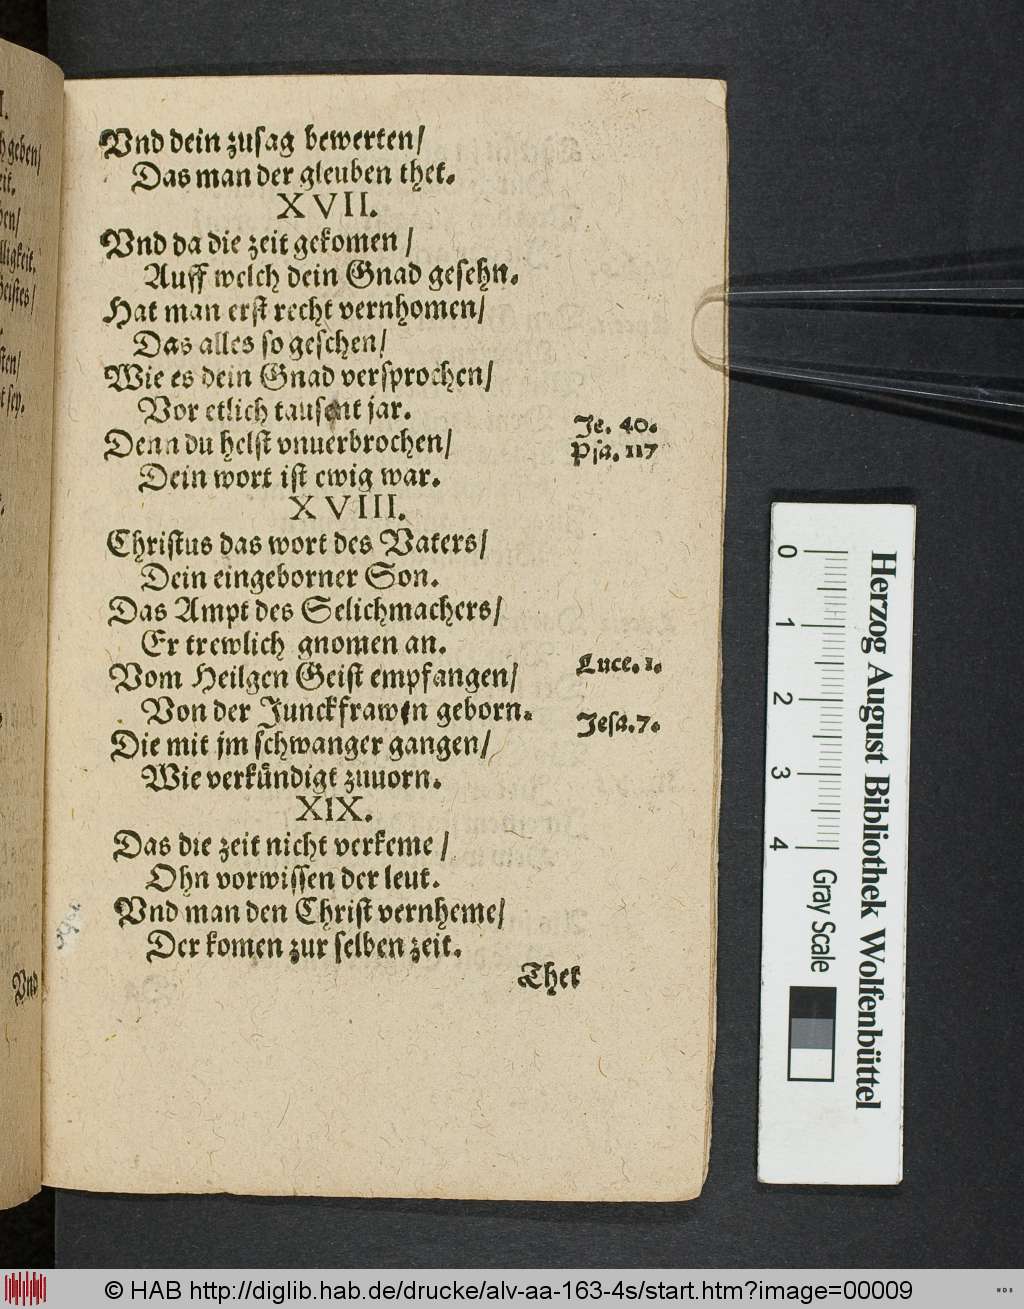 Vnd dein zusag bewerten/
Das man der gleuben thet.
XVII.
Vnd da die zeit gekomen /
Auff welch dein Gnad gesehn.
Hat man erst recht vernhomen/
Das alles so geschen/
Wie es dein Gnad versprochen/
Vor etlich tausent jar.
Denn du helst vnuerbrochen/
Je. 40.
Psa. 117
Dein wort ist ewig war.
XVIII.
Christus das wort des Vaters/
Dein eingeborner Son.
Das Ampt des Selichmachers/
Er trewlich gnomen an.
Vom Heilgen Geist empfangen/
Luce. 1.
Von der Junckfrawen geborn.
Jesa. 7.
Die mit jm schwanger gangen/
Wie verkündigt zuuorn.
XIX.
Das die zeit nicht verkeme /
Ohn vorwissen der leut.
Vnd man den Christ vernheme/
Der komen zur selben zeit.
Thet
geben/
ligkeit.
Vnd
0 1 2 3 4
Gray Scale
Herzog August Bibliothek Wolfenbüttel
© HAB http://diglib.hab.de/drucke/alv-aa-163-4s/start.htm?image=00009